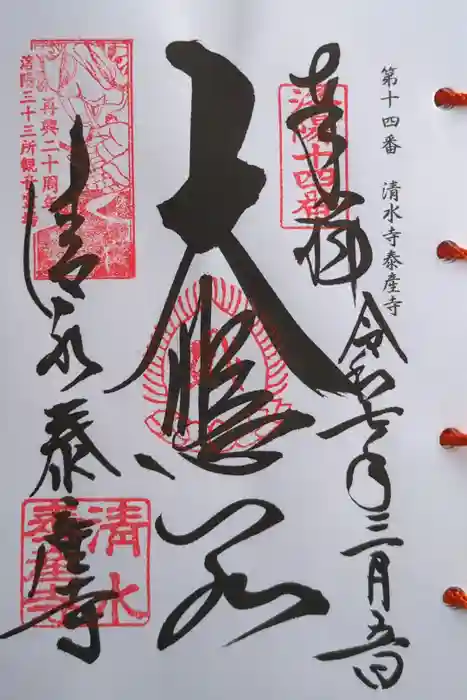 第十四番　清水寺泰産寺
奉拝
洛陽十四番
令和七年三月五日
大悲閣
洛陽三十三所観音霊場
再興二十周年
清水泰産寺
清水
泰産寺